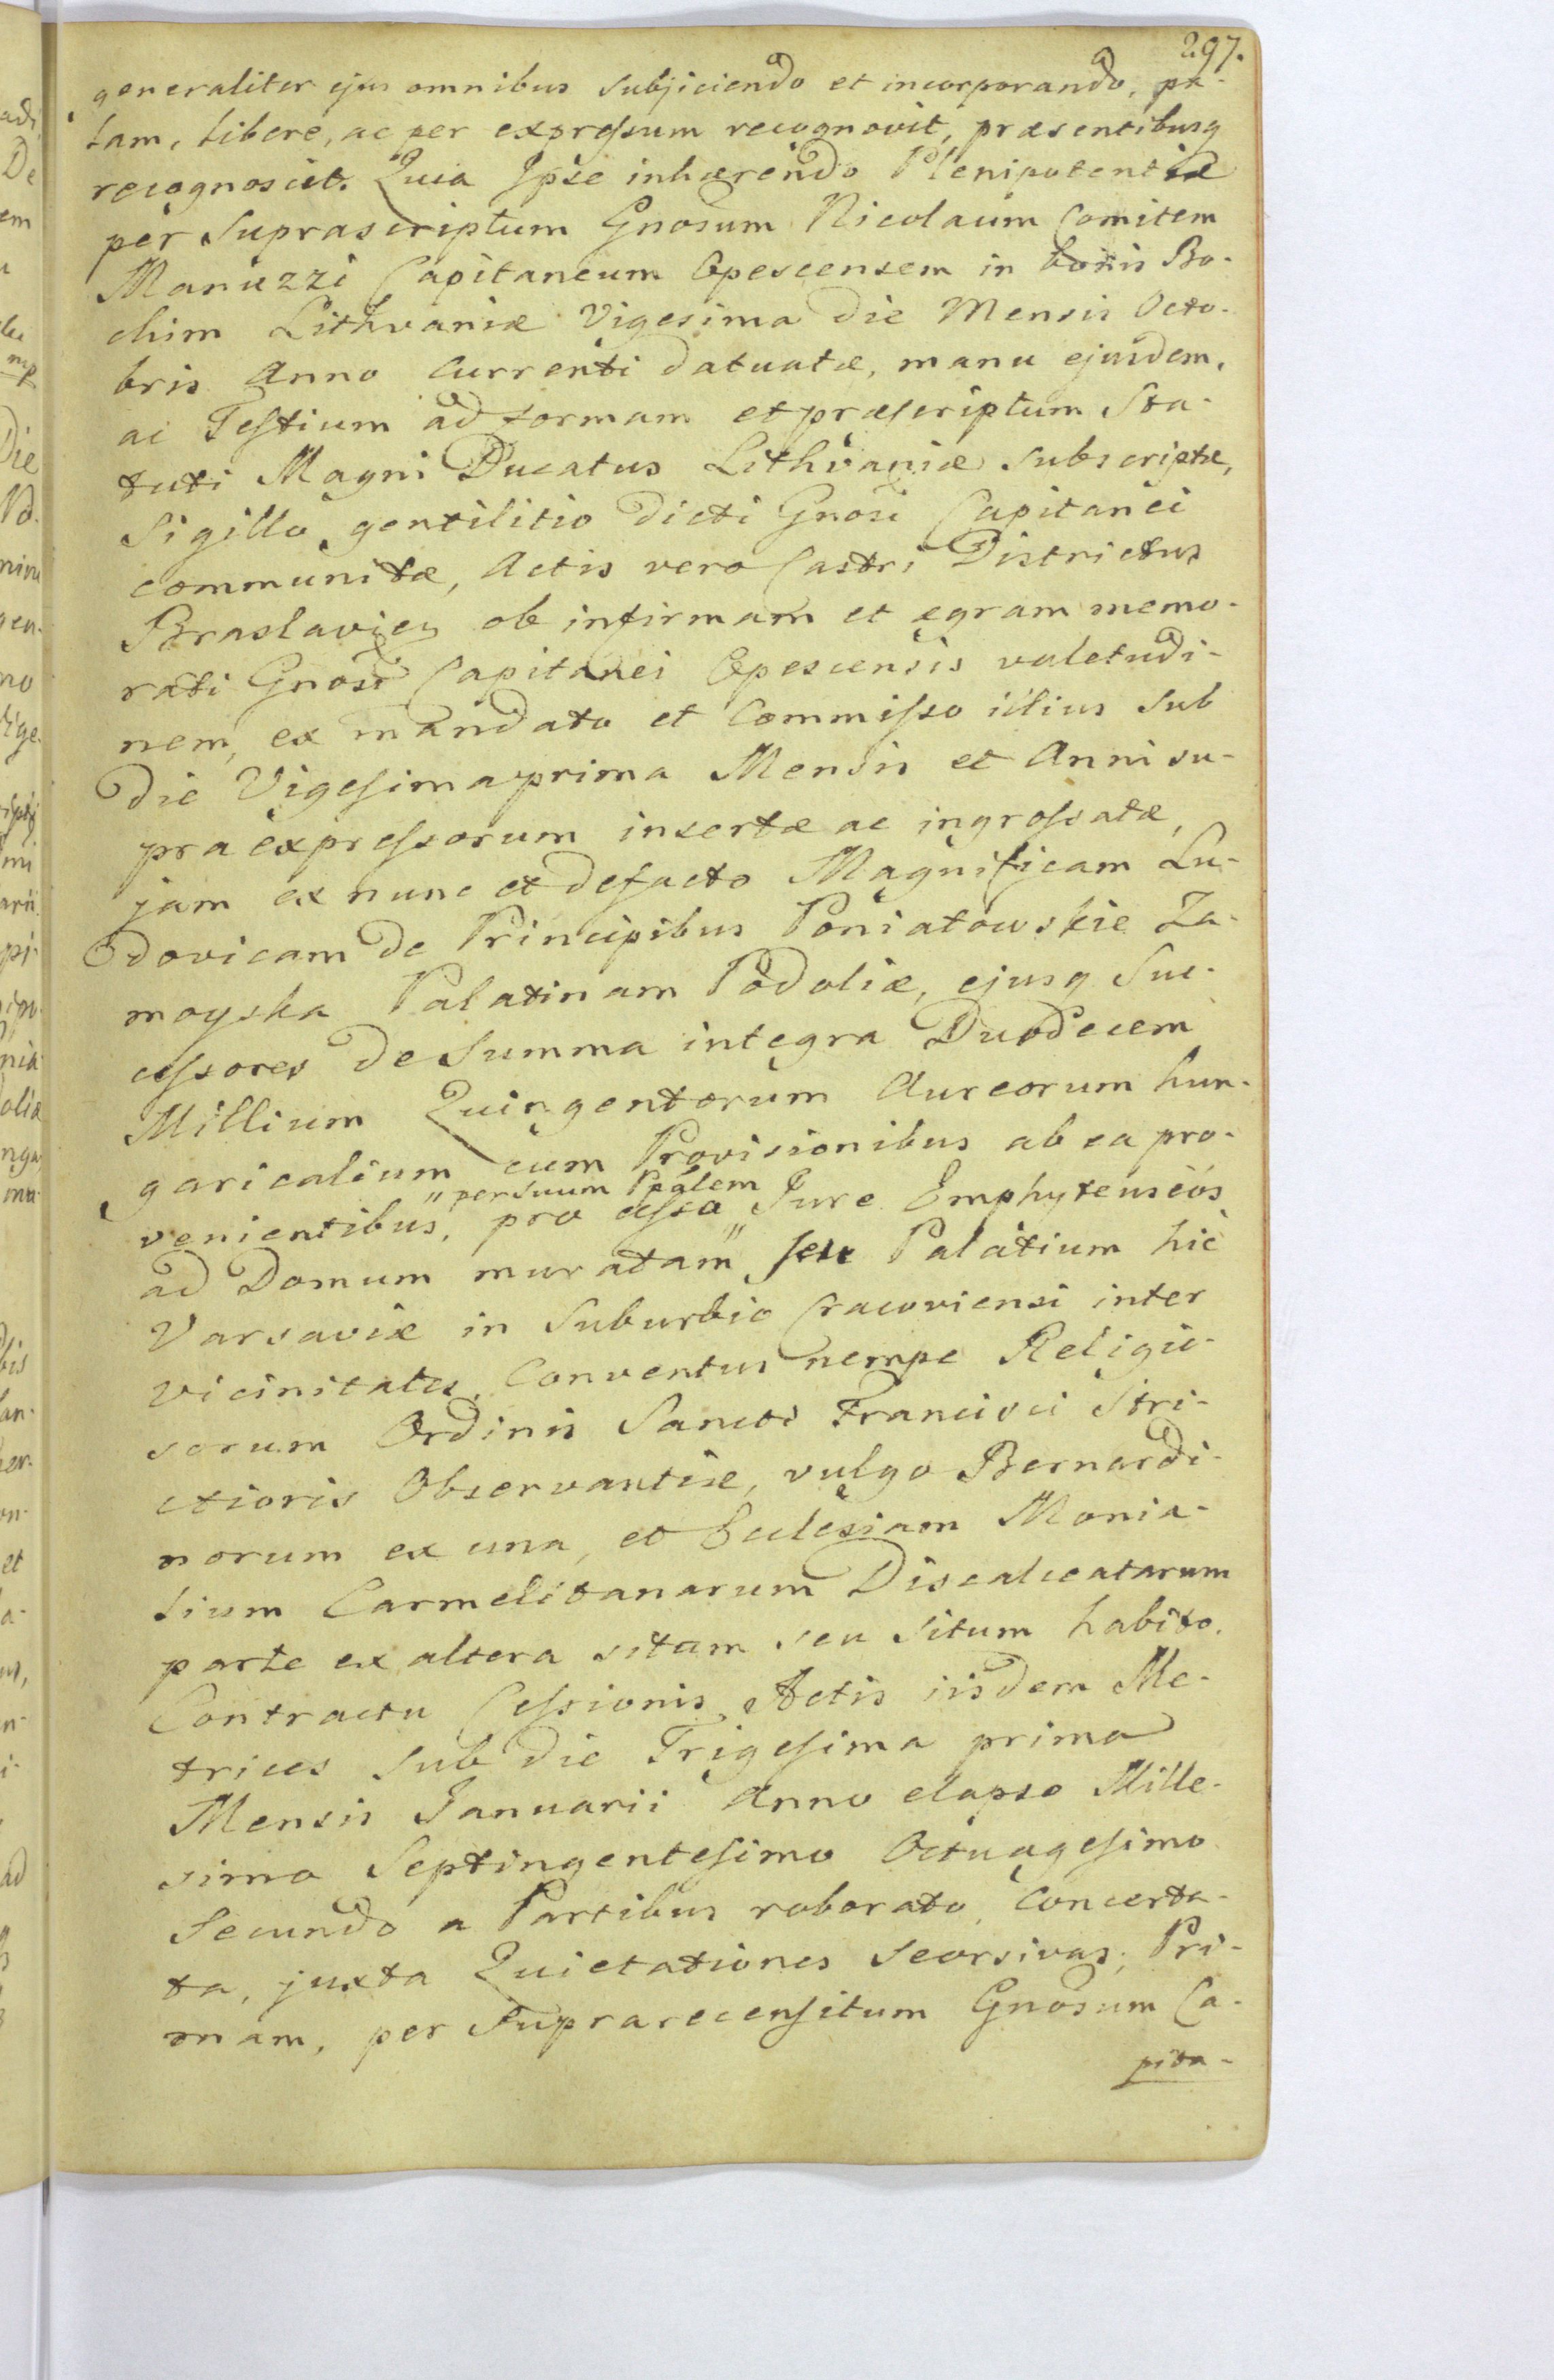 297.
generaliter ejus omnibus subjiciendo et incorporando, pa-
lam, libere, ac per expressum recognovit, præsentibusq
recognoscit. Quia Ipse inhærendo Plenipotentiæ
per suprascriptum Gnosum Nicolaum Comitem
Manuzzi Capitaneum Opescensem in bonis Bo-
chim Lithvaniæ Vigesima die Mensis Octo-
bris Anno currenti datuatæ, manu ejusdem,
ac Testium ad formam et præscriptum Sta-
tuti Magni Ducatus Lithvaniæ subscriptæ,
Sigillo gentilitio dicti Gnosi Capitanei
communitæ, Actis vero Castri Districtus
Braslavien ob infirmam et ægram memo-
rati Gnosi Capitanei Opescensis valetudi-
nem, ex mandato et Commisso illius sub
die Vigesimaprima Mensis et Anni su-
praexpressorum insertæ ac ingrossatæ,
jam ex nunc et defacto Magnificam Lu-
dovicam de Principibus Poniatowskie Za-
moyska Palatinam Podoliæ, ejusq Suc-
cessores de Summa integra Duodecem
Millium Quingentorum Aureorum hun-
garicalium cum Provisionibus ab ea pro-
venientibus, pro cesso Jure Emphyteuseos
" per suum Ppalem
ad Domum muratam" seu Palatium hic
Varsaviæ in Suburbio Cracoviensi inter
vicinitates, Conventus nempe Religio-
sorum Ordinis Sancti Francisci Stri-
ctioris Observantiæ, vulgo Bernardi-
norum ex una, et Ecclesiam Monia-
lium Carmelitanarum Discalceatarum
parte ex altera sitam seu situm habito.
Contractu Cessionis Actis iisdem Me-
trices sub die Trigesima prima
Mensis Januarii Anno elapso Mille-
simo Septingentesimo Octuagesimo
Secundo a Partibus roborato, concerta-
ta, juxta Quietationes seorsivas, Pri-
mam, per suprarecensitum Gnosum Ca-
pita-